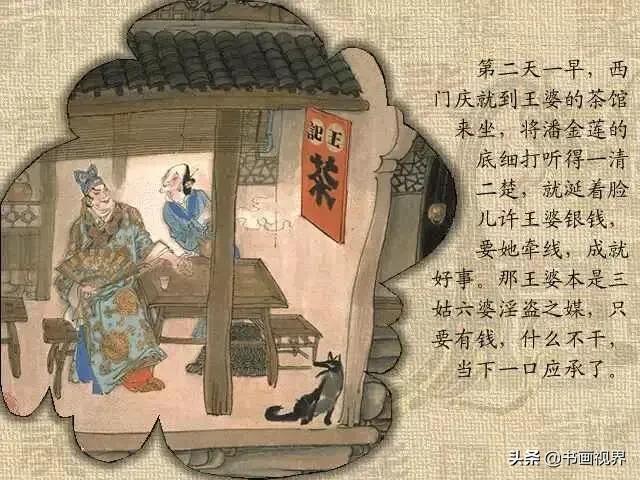 第二天一早，西
门庆就到王婆的茶馆
来坐，将潘金莲的
底细打听得一清
二楚，就涎着脸
儿许王婆银钱，
要她牵线，成就
好事。那王婆本是三
姑六婆淫盗之媒，只
要有钱，什么不干，
当下一口应承了。
王记
茶
头条 @书画视界